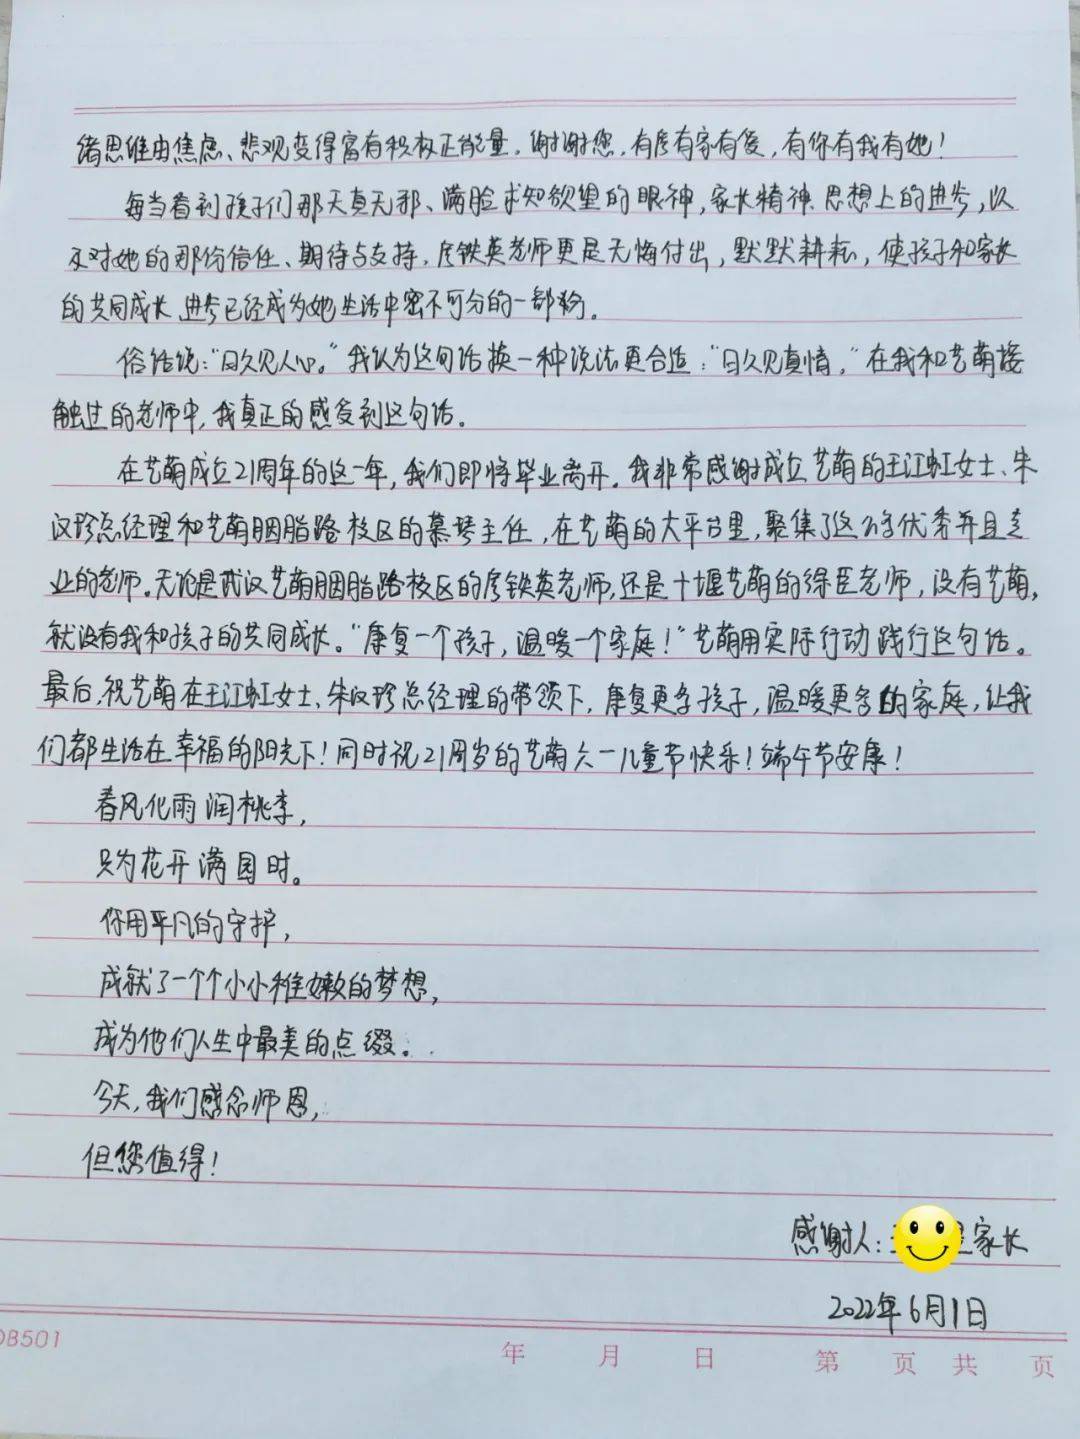 绪思维由焦虑、悲观变得富有积极正能量。谢谢您，有彦有家有爱，有你有我有她！
每当看到孩子们那天真无邪、满脸求知欲望的眼神，家长精神、思想上的进步，以
及对她的那份信任、期待与支持，彦铁英老师更是无悔付出，默默耕耘，使孩子和家长
的共同成长、进步已经成为她生活中密不可分的一部份。
俗话说：“日久见人心。”我认为这句话换一种说法更合适：“日久见真情。”在我和艺萌接
触过的老师中，我真正的感受到这句话。
在艺萌成立21周年的这一年，我们即将毕业离开。我非常感谢成立艺萌的王江虹女士、朱
汉珍总经理和艺萌胭脂路校区的慕琴主任，在艺萌的大平台里，聚集了这么多优秀并且专
业的老师。无论是武汉艺萌胭脂路校区的彦铁英老师，还是十堰艺萌的徐臣老师，没有艺萌，
就没有我和孩子的共同成长。“康复一个孩子，温暖一个家庭！”艺萌用实际行动践行这句话。
最后，祝艺萌在王江虹女士、朱汉珍总经理的带领下，康复更多孩子，温暖更多的家庭，让我
们都生活在幸福的阳光下！同时祝21周岁的艺萌六一儿童节快乐！端午节安康！
春风化雨润桃李，
只为花开满园时。
你用平凡的守护，
成就了一个个小小稚嫩的梦想，
成为他们人生中最美的点缀。
今天，我们感念师恩，
但您值得！
感谢人：家长
2022年6月1日
DB501
年 月 日 第 页 共 页